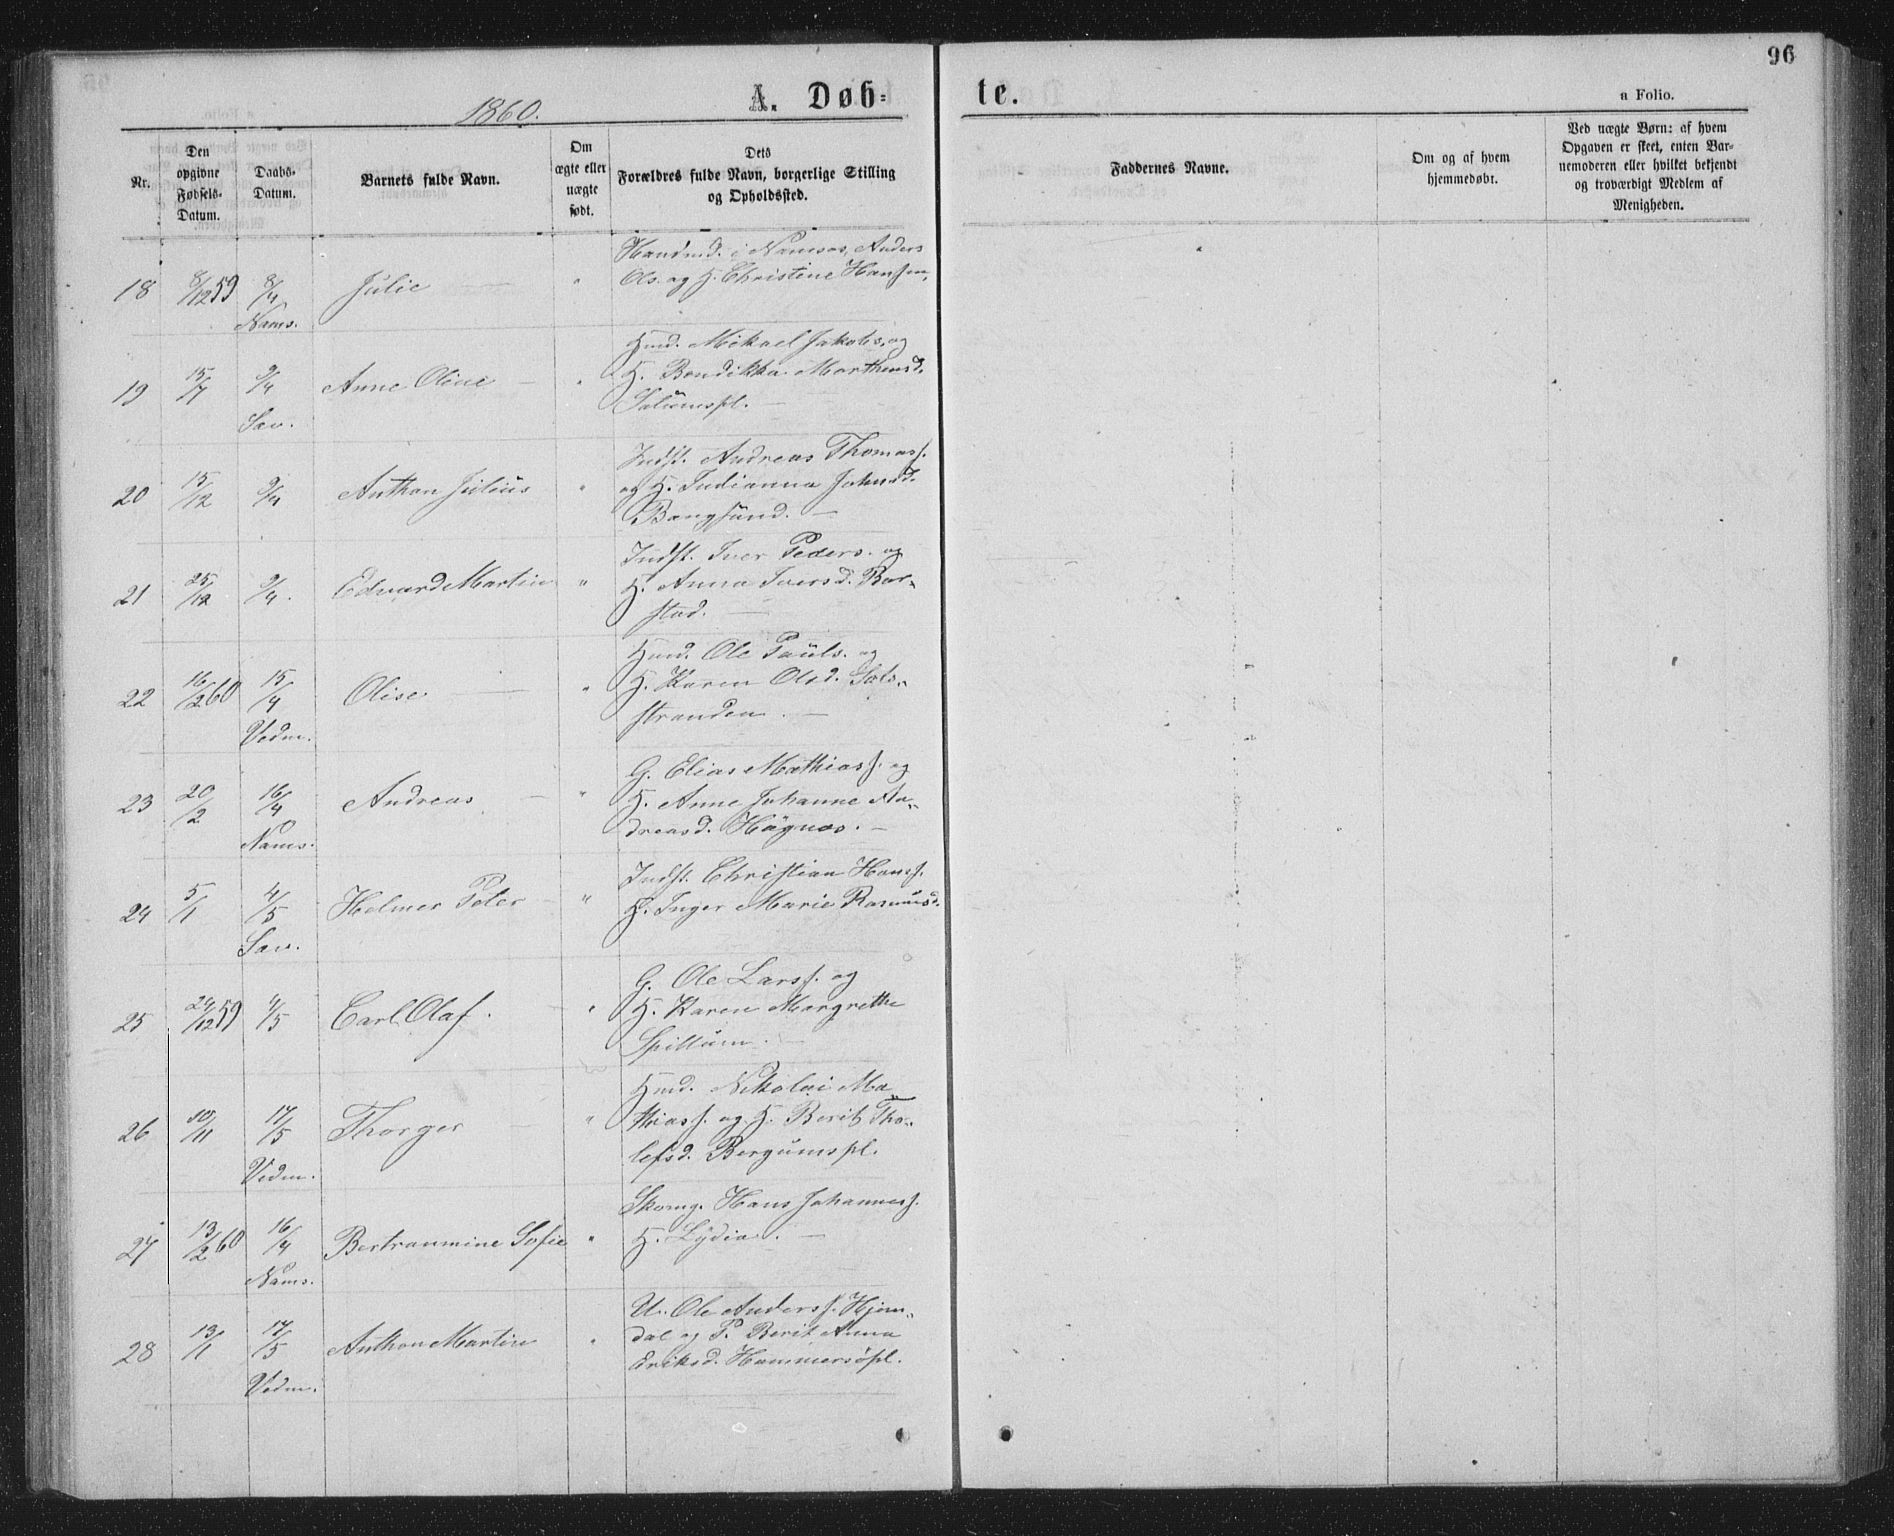 96
1860.
A. Døb-
te.
a Folio.
Nr.
Den
opgivne
Fødsels-
Datum.
Daabs-
Datum.
Barnets fulde Navn.
Om
ægte eller
uægte
født.
Dets
Forældres fulde Navn, borgerlige Stilling
og Opholdssted.
Faddernes Navne.
Om og af hvem
hjemmedøbt.
Ved uægte Børn: af hvem
Opgaven er skeet, enten Bar-
nemoderen eller hvilket bekjendt
og troværdigt Medlem af
Menigheden.
18 8/12 59 8/4 Nams. Julie "
i Namsos, Anders
Ols. og H. Christine Hansen,
19 15/1 9/4 Sav. Anne Oline "
Hmd. Mikael Jakobs. og
H. Bendikka Marthensd.
Salümspl.
20 15/12 9/4 Anthon Julius "
Indst. Andreas Thomass.
og H. Indianna Johnsd.
Bangsund.
21 25/12 9/4 Edvard Martin "
Indst. Iver Peders. og
H. Anna Iversd. Bar-
stad.
22 16/2 60 15/4 Vedm. Olise "
Hmd. Ole Pauls. og
H. Karen Olsd. Sæts-
stranden.
23 20/2 16/4 Nams. Andreas "
G. Elias Mathiass. og
H. Anne Johanne An-
dreasd. Høgnes.
24 5/1 4/5 Sav. Helmer Peter "
Indst. Christian Hanss.
H. Inger Marie Rasmusd.
25 24/12 59 4/5 Carl Olaf. "
G. Ole Larss. og
H. Karen Margrethe
Spillum.
26 10/11 17/5 Vedm. Thorger "
Hmd. Nikolai Ma
thiass. og H. Berit Tho-
lefsd. Bergumspl.
27 13/2 60 16/4 Nams. Bertranmine Sofie "
Skomg. Hans Johanness.
H. Lydia.
28 13/1 17/5 Vedm. Anthon Martin "
U. Ole Anderss. Hjem-
dal og P. Berit Anna
Eriksd. Hammersøpl.